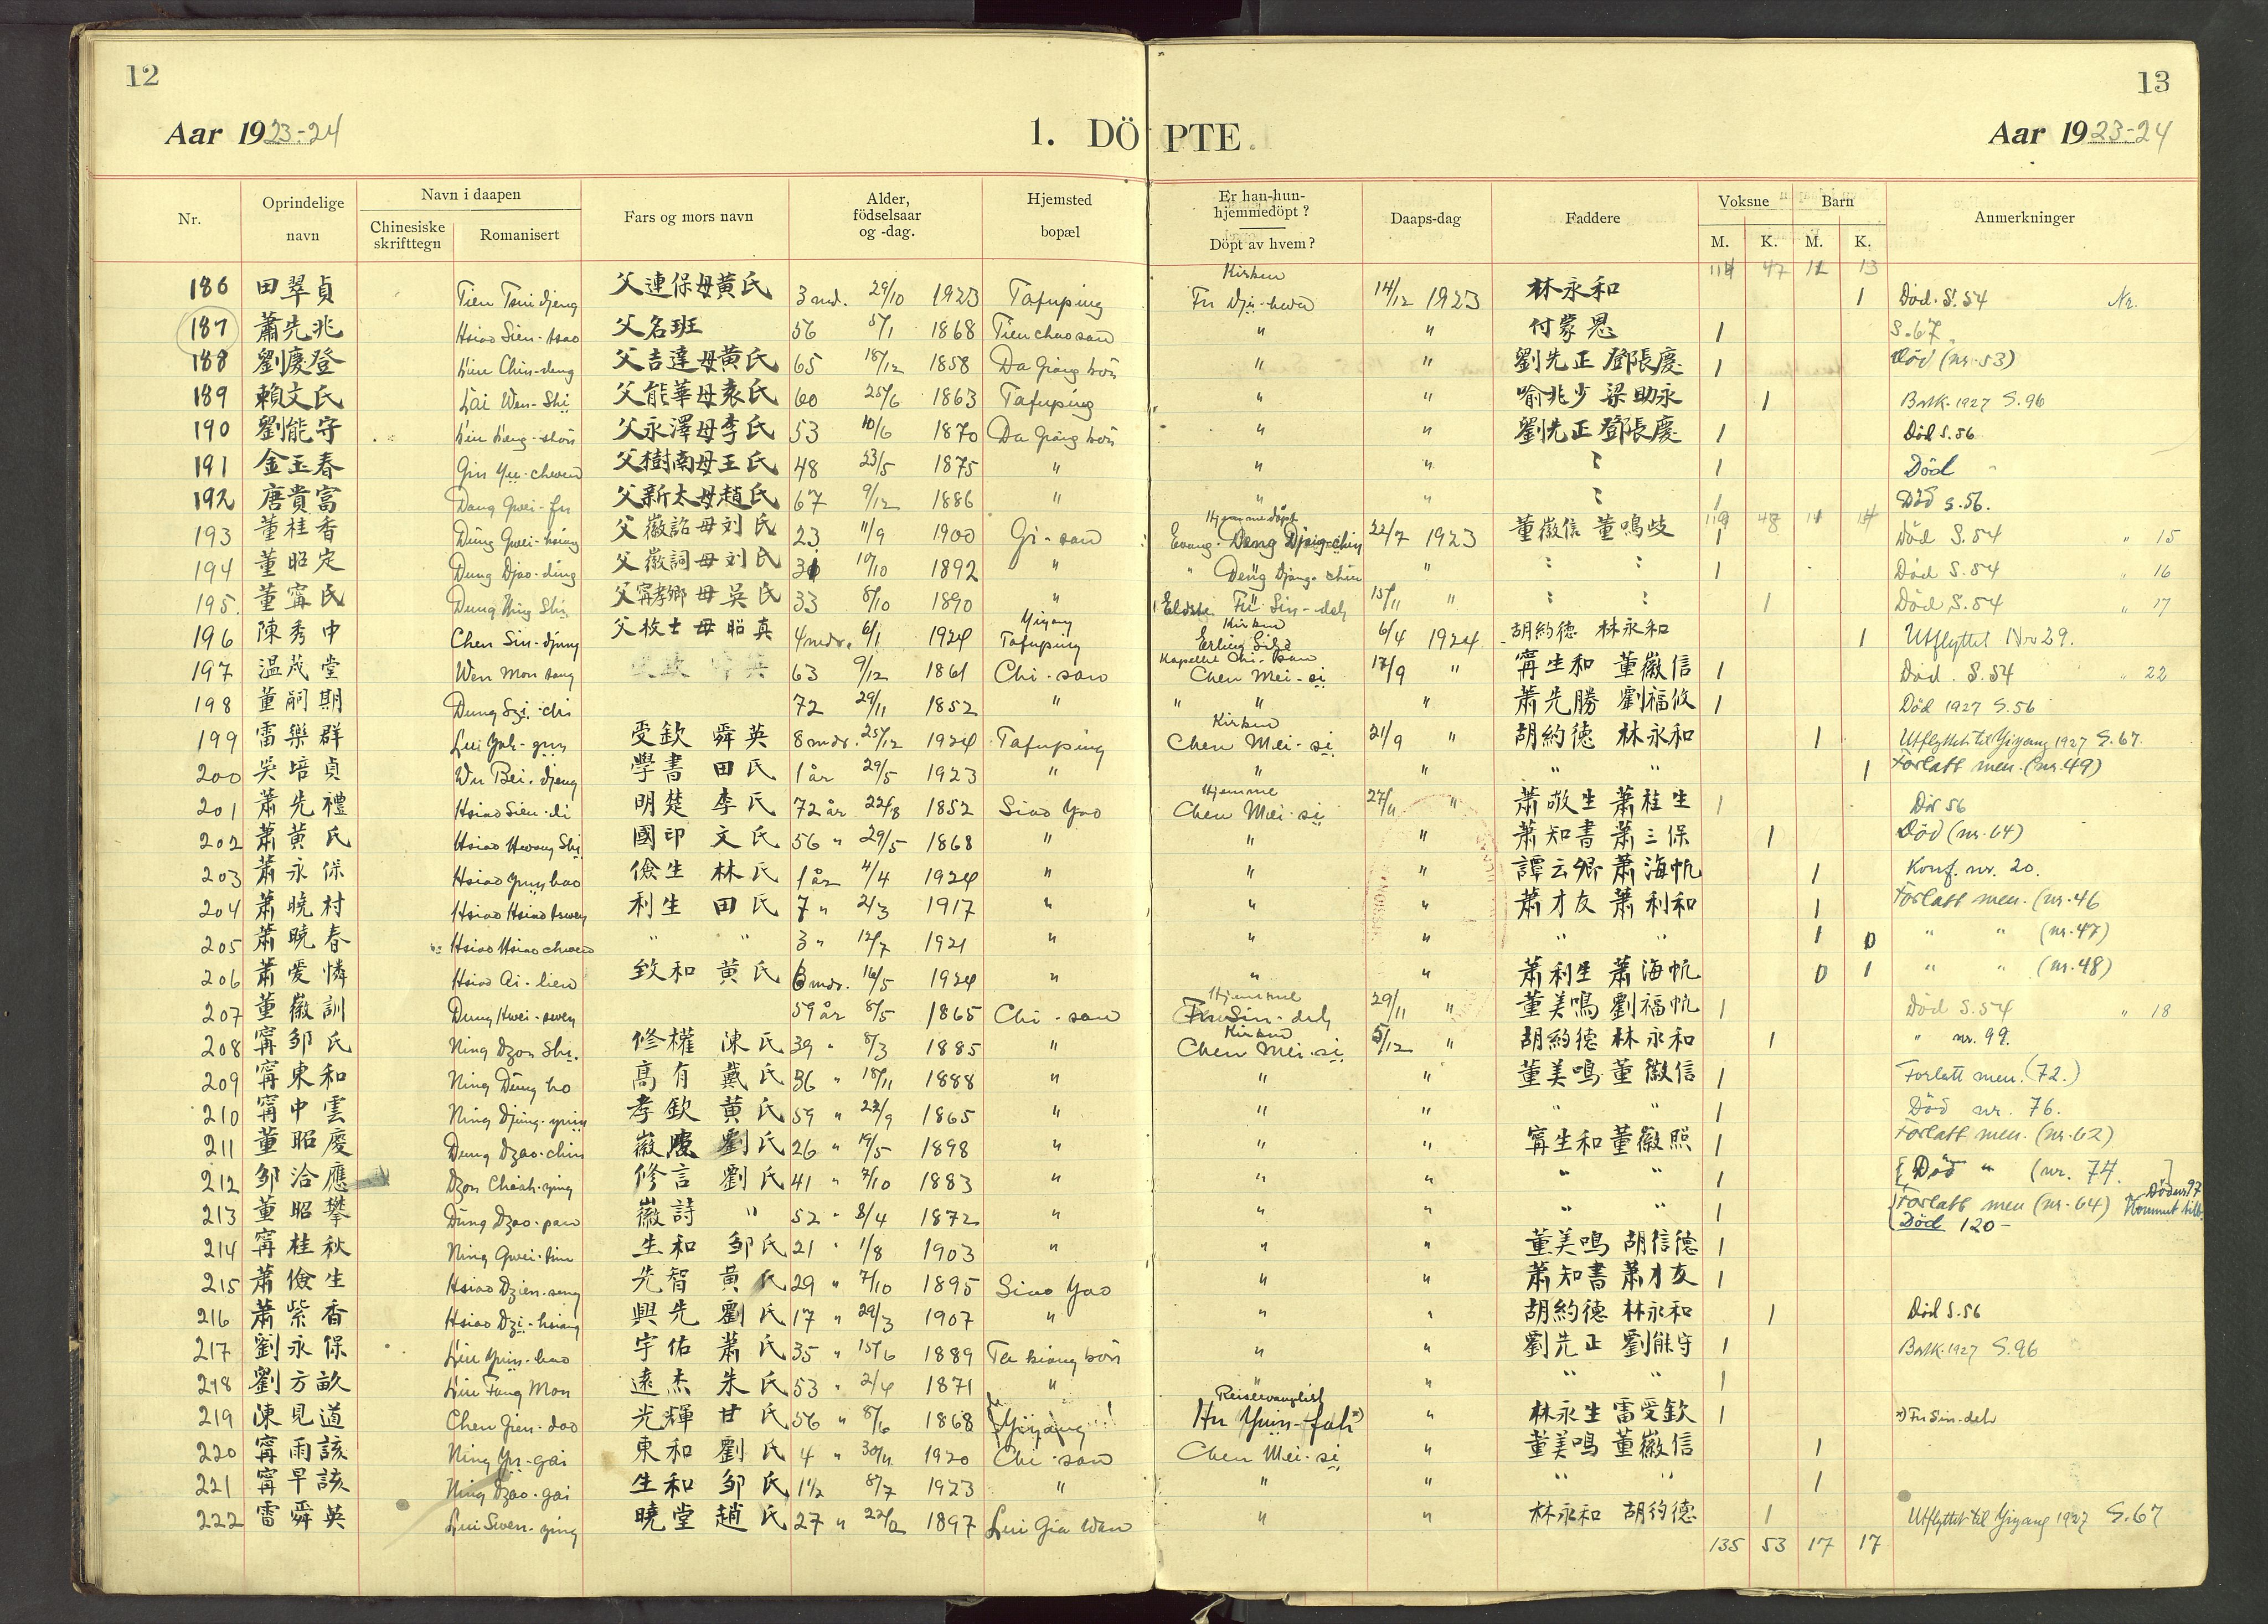 12
13
Aar 1923-24
1. DÖPTE.
Aar 1923-24
Nr.
Oprindelige navn
Navn i daapen
Chinesiske skrifttegn
Romanisert
Fars og mors navn
Alder, födselsaar og -dag.
Hjemsted bopæl
Er han-hun-hjemmedöpt?
Döpt av hvem?
Daaps-dag
Faddere
Voksne
M.
K.
Barn
M.
K.
Anmerkninger
114 47 12 13
186 田翠貞 Tien Tsui djeng 父連保母黃氏 3 md. 29/10 1923 Tafuping Kirken Fu Dji-hwa 14/12 1923 林永和 1 Död. S. 54 Nr.
187 蕭先兆 Hsiao Sien-tsao 父名班 56 5/1 1868 Tienchaosan " " 付蒙恩 1 S. 67
188 劉慶登 Liu Chin-deng 父吉達母黃氏 65 18/12 1858 Da Giang kou " " 劉先正 鄧張慶 1 Död (nr. 53)
189 賴文氏 Lai Wen-Shi 父能華母袁氏 60 25/6 1863 Tafuping " " 喻兆少 梁助永 1 1927 S. 96
190 劉能守 父永澤母李氏 53 10/6 1870 Da Giang kou " " 劉先正 鄧張慶 1 Död S. 56
191 金玉春 Gin Yu-chwen 父樹南母王氏 48 23/5 1875 " " " 1 Död
192 唐貴富 Dang Gwei-fu 父新太母趙氏 67 9/12 1886 " " " 1 Död S. 56.
119 48 11 14
193 董桂香 Dung Gwei-hsiang 父徽詔母刘氏 23 11/9 1900 Gi-san Hjemmedöpt Evang. Deng Djang-chin 22/7 1923 董徽信 董鳴歧 1 Död S. 54 " 15
194 董昭定 Dung Djao-ding 父徽詞母刘氏 31 10/10 1892 " " Deng Djang-chin " 1 Död S. 54 " 16
195. 董甯氏 Dung Ning Shi 父甯孝卿母吳氏 33 8/10 1890 " Eldste Fu Sin-deh 15/11 " 1 Död S. 54 " 17
196 陳秀中 Chen Siu-djung 父枚士母昭真 4 mdr. 6/1 1924 Yiyang Tafuping Kirken Erling Gilje 6/4 1924 胡約德 林永和 1 Utflyttet Nr 29.
197 温茂堂 Wen Mou tang 63 9/12 1861 Chi-san Kapellet Chi-san Chen Mei-si 17/9 " 甯生和 董徽信 1 Död. S. 54 " 22
198 董嗣期 Dung Szi-chi 72 29/11 1852 " " " " 蕭先勝 劉福攸 1 Död 1927 S. 56
199 雷樂群 Lui Yoh-gun 受欽 舜英 8 mdr. 25/12 1924 Tafuping Kirken Chen Mei-si 21/9 " 胡約德 林永和 1 Utflyttet til Yiyang 1927 S. 67.
200 吳培貞 Wu Bei-djeng 學書 田氏 1 år 29/5 1923 " " " " " 1 Forlatt men. (nr. 49)
201 蕭先禮 Hsiao Sien-li 明楚 李氏 72 år 22/8 1852 Siao Yao Hjemme Chen Mei-si 27/11 " 蕭敬生 蕭桂生 1 Död 56
202 蕭黃氏 Hsiao Hwang Shi 國印 文氏 56 " 29/5 1868 " " " 蕭知書 蕭三保 1 Död (nr. 64)
203 蕭永保 Hsiao Yun bao 儉生 林氏 1 år 4/4 1924 " " " 譚云卿 蕭海帆 1 Konf. nr. 20.
204 蕭曉村 Hsiao Hsiao tswen 利生 田氏 7 " 2/3 1917 " " " 蕭才友 蕭利和 1 Forlatt men. (nr. 46
205 蕭曉春 Hsiao Hsiao chwen " " 3 " 12/7 1921 " " " " " 1 0 " " (nr. 47)
206 蕭愛憐 Hsiao Ai-lien 致和 黃氏 6 mdr. 16/5 1924 " " " 蕭利生 蕭海帆 0 1 " " (nr. 48)
207 董徽訓 Dung Hwei-swen 59 år 8/5 1865 Chi-san Hjemme Fu Sin-deh 29/11 " 董美鳴 劉福帆 1 Död S. 54 " 18
208 甯邹氏 Ning Dzou Shi. 修權 陳氏 39 " 8/3 1885 " Kirken Chen Mei-si 5/12 " 胡約德 林永和 1 " nr. 99.
209 甯東和 Ning Dung ho 高有 戴氏 36 " 18/11 1888 " " " 董美鳴 董徽信 1 Forlatt men. (72.)
210 甯中雲 Ning Djung-yuin 孝欽 黃氏 59 " 22/9 1865 " " " " " 1 Död nr. 76.
211 董昭慶 Dung Dzao-chin 徽慶 劉氏 26 " 19/5 1898 " " " 甯生和 董徽照 1 Forlatt men. (nr. 62)
212 邹洽應 Dzou Chiah-ying 修言 劉氏 41 " 7/10 1883 " " " " " 1 Död " (nr. 74.
213 董昭攀 Dung Dzao-pan 徽詩 " 52 " 8/4 1872 " " " " " 1 Forlatt men (nr. 64) Kommet tilb. Död nr 97
Död 120-
214 甯桂秋 Ning Gwei-tsiu 生和 邹氏 21 " 1/8 1903 " " " 董美鳴 胡信德 1
215 蕭儉生 Hsiao Dzien-seng 先智 黃氏 29 " 7/10 1895 Siao Yao " " 蕭知書 蕭才友 1
216 蕭紫香 Hsiao Dzi-hsiang 興先 劉氏 17 " 29/3 1907 " " " 胡約德 林永和 1 Död S. 56
217 劉永保 Liu Yuin-bao 宇佑 蕭氏 35 " 15/6 1889 Ta kiang kou " " 劉先正 劉能守 1 1927 S. 96
218 劉方畝 Liu Fang Mou 遠杰 朱氏 53 " 2/4 1871 " " " " " 1
219 陳見道 Chen Gien-dao 光輝 甘氏 56 " 8/6 1868 Yiyang Reiseevangelist Hu Yuin-fah *) " 林永生 雷受欽 1 *) Fu Sin-deh
220 甯雨該 Ning Yu-gai 東和 劉氏 4 " 30/11 1920 Chi-san Chen Mei-si " 董美鳴 董徽信 1
221 甯早該 Ning Dzao-gai 生和 邹氏 1 1/2 8/7 1923 " " " " " 1
222 雷舜英 Lui Swen-ying 曉堂 趙氏 27 " 22/2 1897 Lui Gia Wan " " 林永和 胡約德 1 Utflyttet til Yiyang 1927 S. 67
135 53 17 17